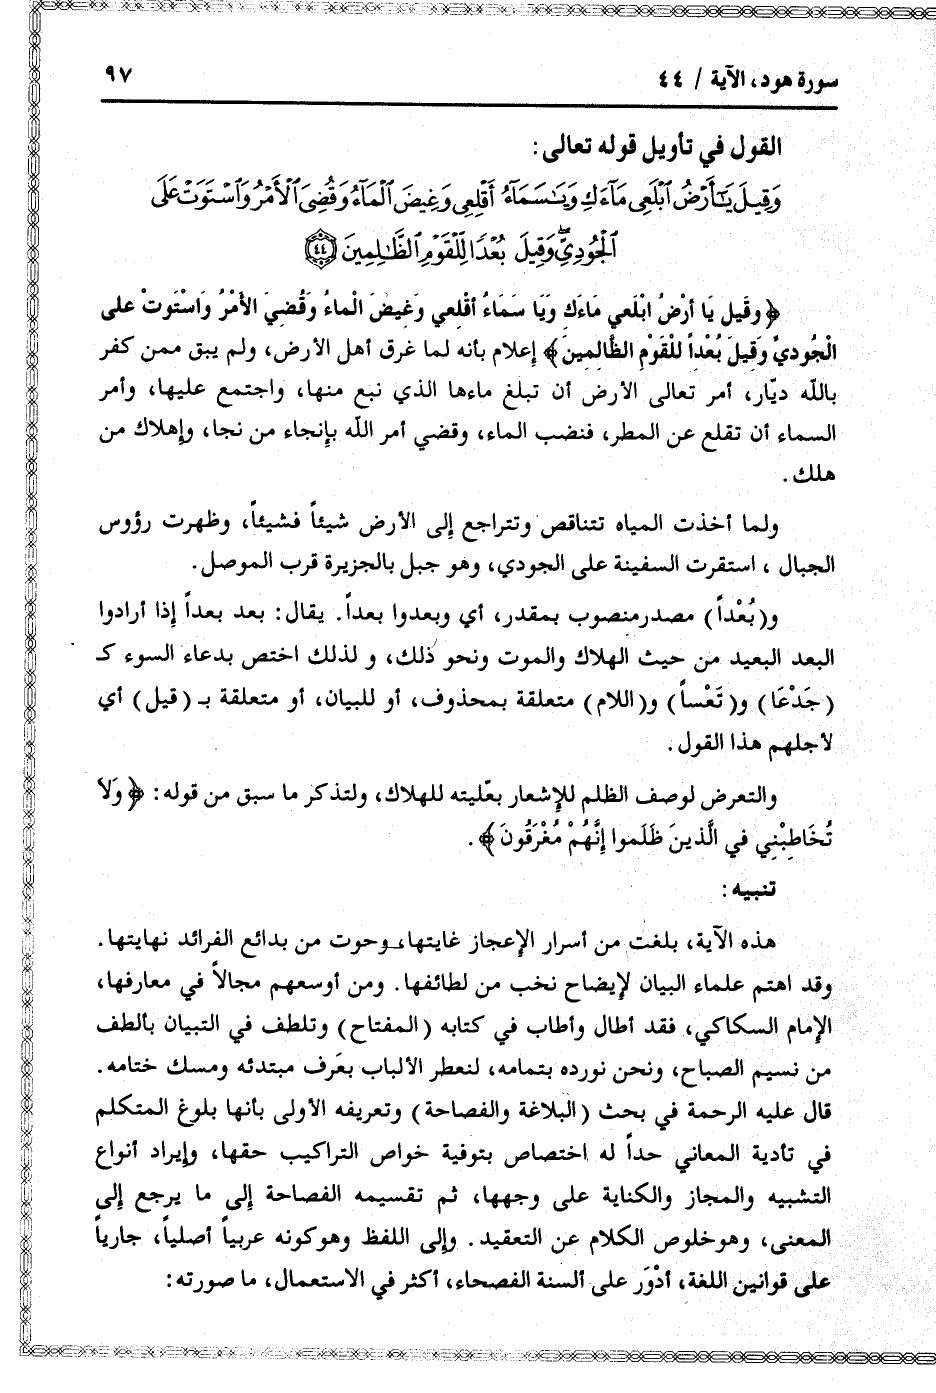 سورة هود، الآية / ٤٤
٩٧
القول في تأويل قوله تعالى:
وَقِيلَ يَٰٓأَرْضُ ٱبْلَعِى مَآءَكِ وَيَٰسَمَآءُ أَقْلِعِى وَغِيضَ ٱلْمَآءُ وَقُضِىَ ٱلْأَمْرُ وَٱسْتَوَتْ عَلَى
ٱلْجُودِىِّ ۖ وَقِيلَ بُعْدًا لِّلْقَوْمِ ٱلظَّٰلِمِينَ ٤٤
﴿وقَيل يَا أرْضُ ابْلَعي مَاءَك ويَا سَمَاءُ أقْلعي وَغيضَ الْماءُ وقُضيَ الأمْرُ وَاسْتَوتْ على
الْجُوديِّ وقيلَ بُعْداً للْقَوْم الظَّالمينَ﴾ إعلام بأنه لما غرق أهل الأرض، ولم يبق ممن كفر
بالله ديّار، أمر تعالى الأرض أن تبلغ ماءها الذي نبع منها، واجتمع عليها، وأمر
السماء أن تقلع عن المطر، فنضب الماء، وقضي أمر الله بإنجاء من نجا، وإهلاك من
هلك.
ولما أخذت المياه تتناقص وتتراجع إلى الأرض شيئاً فشيئاً، وظهرت رؤوس
الجبال ، استقرت السفينة على الجودي، وهو جبل بالجزيرة قرب الموصل.
و(بُعْداً) مصدرمنصوب بمقدر، أي وبعدوا بعداً. يقال: بعد بعداً إذا أرادوا
البعد البعيد من حيث الهلاك والموت ونحو ذلك، و لذلك اختص بدعاء السوء كـ
(جَدْعَا) و(تَعْساً) و(اللام) متعلقة بمحذوف، أو للبيان، أو متعلقة بـ (قيل) أي
لأجلهم هذا القول.
والتعرض لوصف الظلم للإشعار بعّليته للهلاك، ولتذكر ما سبق من قوله: ﴿وَلاَ
تُخَاطِبْنِي في الَّذينَ ظَلَموا إنَّهُمْ مُغْرَقُونَ﴾.
تنبيه:
هذه الآية، بلغت من أسرار الإعجاز غايتها، وحوت من بدائع الفرائد نهايتها.
وقد اهتم علماء البيان لإيضاح نخب من لطائفها. ومن أوسعهم مجالاً في معارفها،
الإمام السكاكي، فقد أطال وأطاب في كتابه (المفتاح) وتلطف في التبيان بألطف
من نسيم الصباح، ونحن نورده بتمامه، لنعطر الألباب بعَرف مبتدئه ومسك ختامه.
قال عليه الرحمة في بحث (البلاغة والفصاحة) وتعريفه الأولى بأنها بلوغ المتكلم
في تأدية المعاني حداً له اختصاص بتوفية خواص التراكيب حقها، وإيراد أنواع
التشبيه والمجاز والكناية على وجهها، ثم تقسيمه الفصاحة إلى ما يرجع إلى
المعنى، وهوخلوص الكلام عن التعقيد. وإلى اللفظ وهوكونه عربياً أصلياً، جارياً
على قوانين اللغة، أدْوَر على ألسنة الفصحاء، أكثر في الاستعمال، ما صورته: